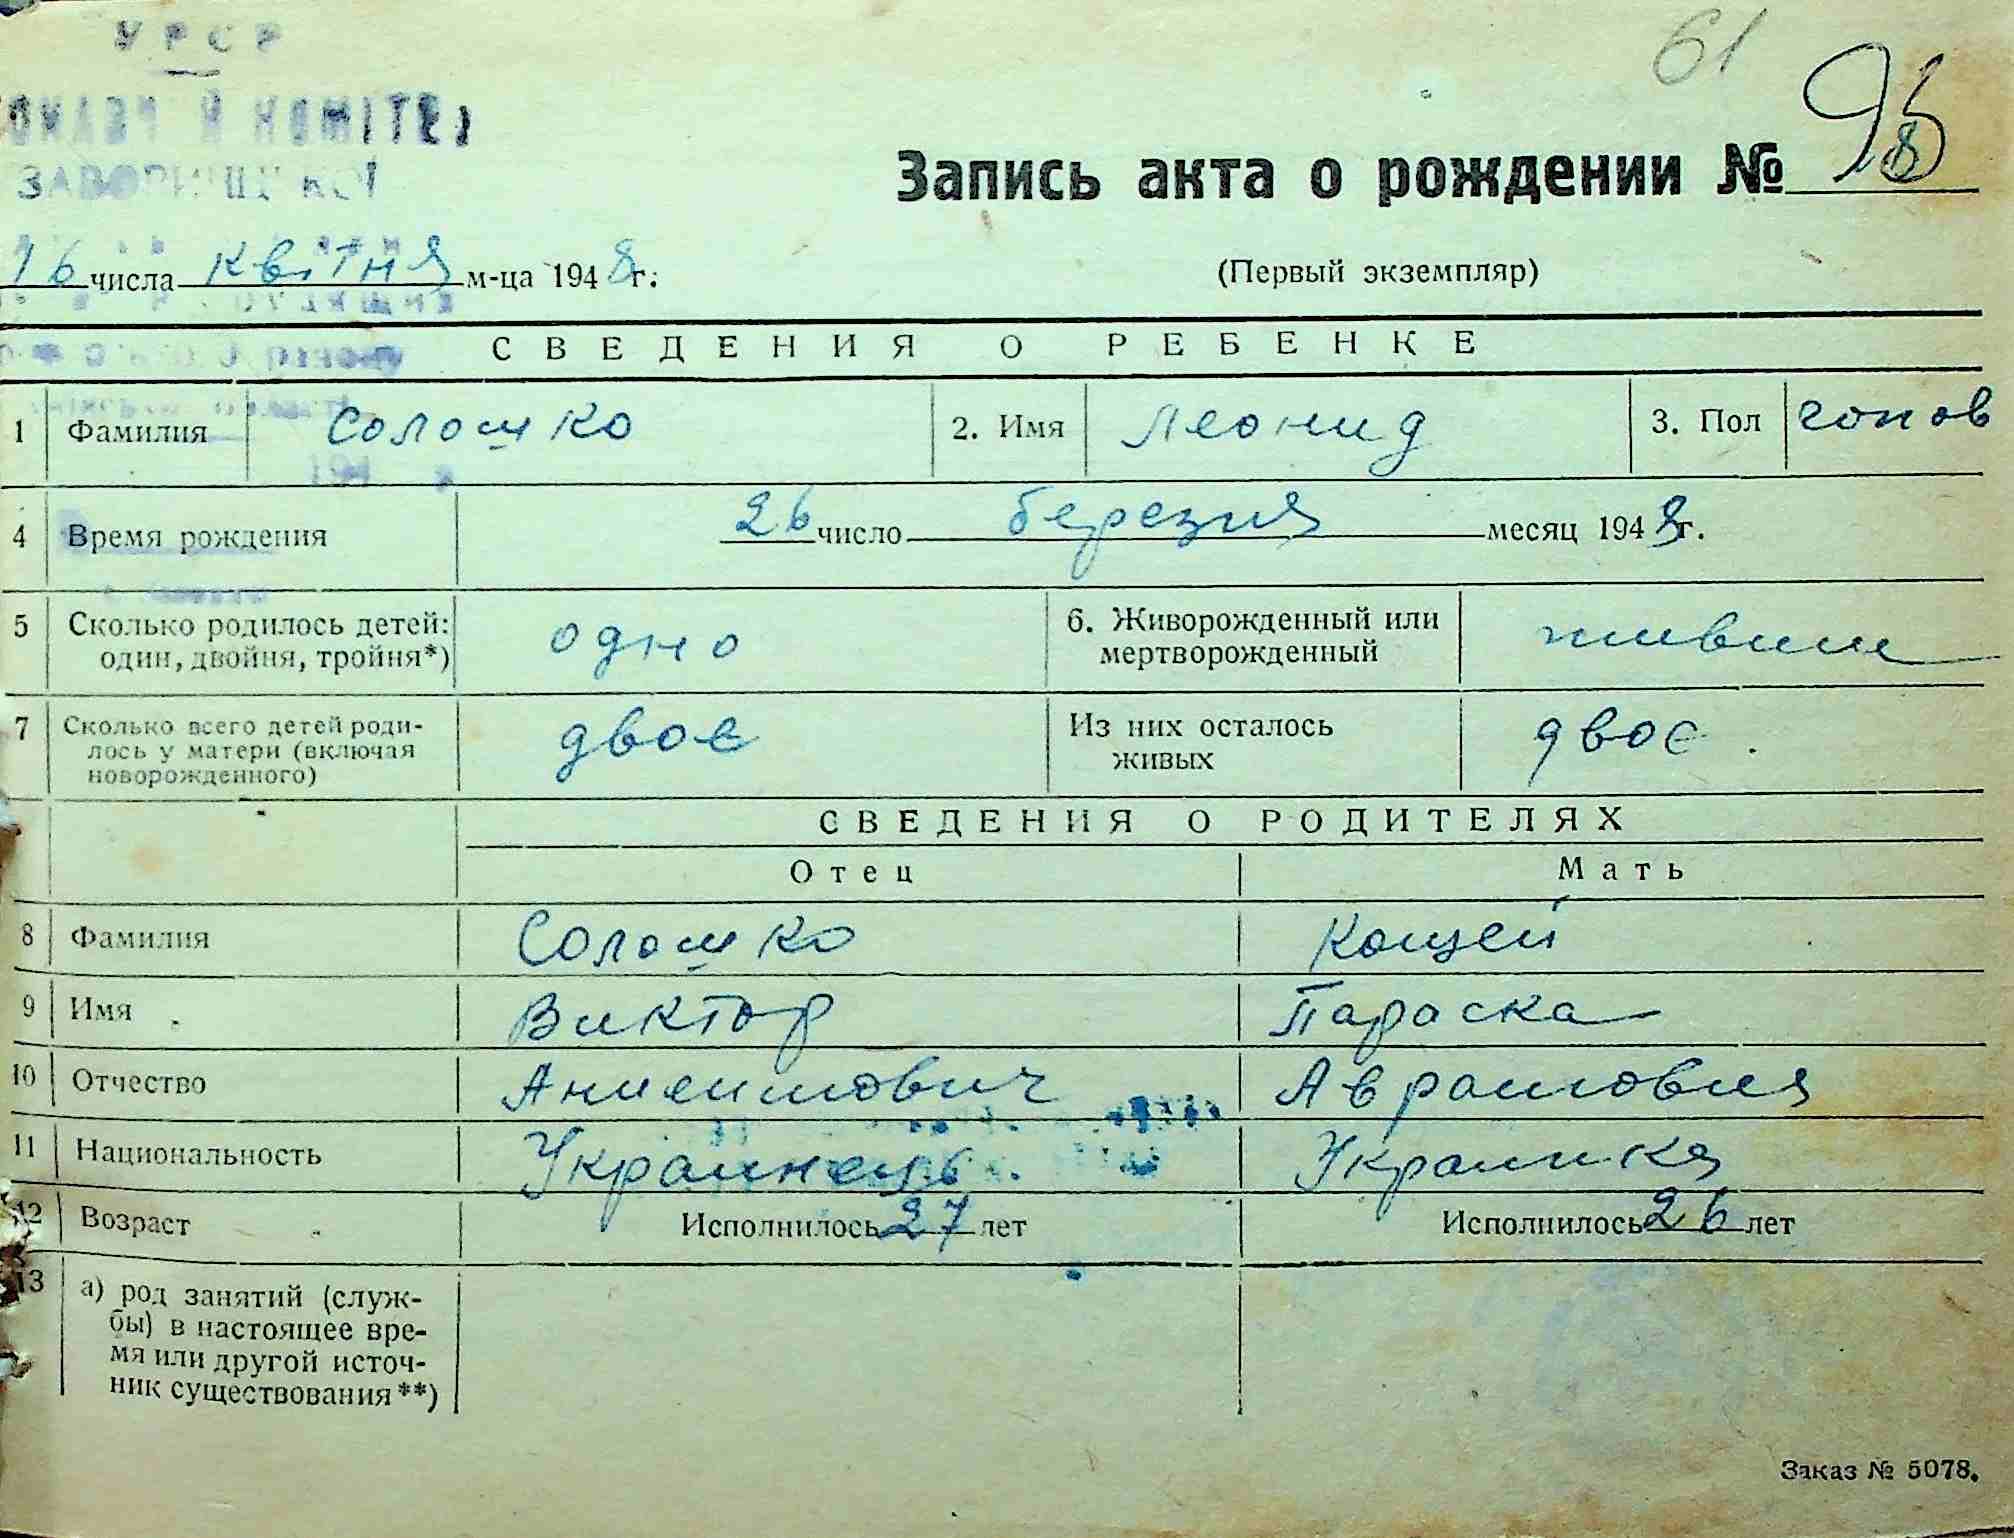 УРСР
61
ЗАВОРИЦЬКОЇ
Запись акта о рождении №
16 числа квітня м-ца 1948 г.
(Первый экземпляр)
СВЕДЕНИЯ О РЕБЕНКЕ
1 Фамилия Соломко 2. Имя Леонид 3. Пол чолов
4 Время рождения 26 число березня месяц 1948 г.
5 Сколько родилось детей: один, двойня, тройня*) одно 6. Живорожденный или мертворожденный живим
7 Сколько всего детей родилось у матери (включая новорожденного) двоє Из них осталось живых двоє
СВЕДЕНИЯ О РОДИТЕЛЯХ
Отец Мать
8 Фамилия Соломко Кощей
9 Имя Виктор Параска
10 Отчество Анисимович Аврамовня
11 Национальность Украинець Украинка
12 Возраст Исполнилось 27 лет Исполнилось 26 лет
13 а) род занятий (служ-
бы) в настоящее вре-
мя или другой источ-
ник существования**)
Заказ № 5078.